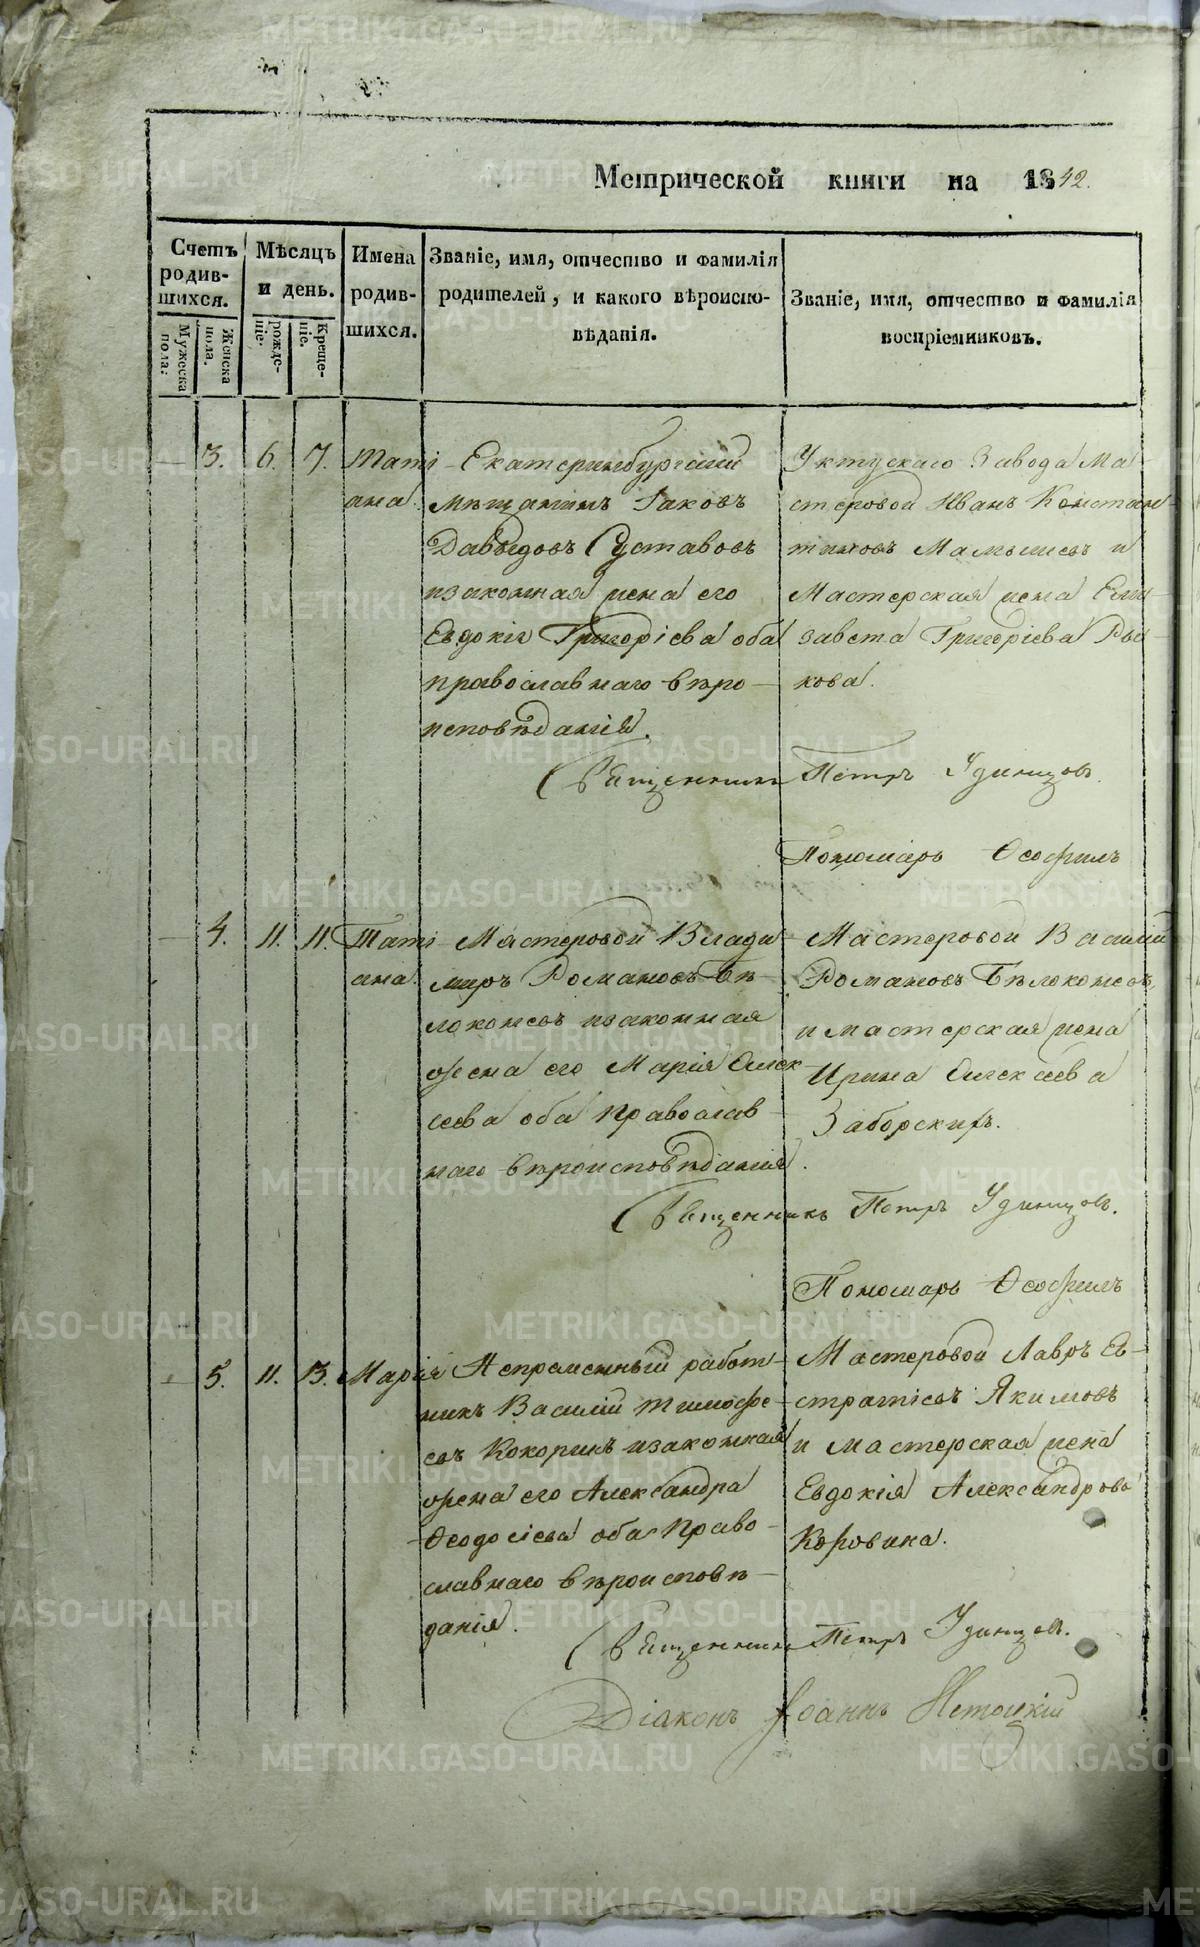 Метрической книги на 1842.
Счетъ родившихся.
Мужеска пола.
Женска пола.
Мѣсяцъ и день.
рождениіе.
Крещеніе.
Имена родившихся.
Званіе, имя, отчество и фамилія
родителей, и какого вѣроиспо-
вѣданія.
Званіе, имя, отчество и фамилія
воспріемниковъ.
3. 6. 7. Таті
ана.
Екатеринбургский
мѣщанинъ Іаковъ
Давыдовъ
изаконная жена его
Евдокія Григоріева оба
православнаго вѣро
исповѣданія.
Уктускаго Завода Ма
стеровой Иванъ Констан
тиновъ и
Мастерская жена Ели
завета Григоріева Ры
кова.
Священникъ Петръ Удинцовъ.
Пономарь Ѳеофилъ
4. 11. 11. Таті
ана.
Мастеровой Влади
миръ Романовъ Бѣ
локоневъ изаконная
жена его Марія Алек
сеева оба православ
наго вѣроисповѣданія.
Мастеровой Василий
Романовъ Бѣлоконевъ,
и мастерская жена
Ирина Алексеева
Заборскихъ.
Священникъ Петръ Удинцовъ.
Пономарь Ѳеофилъ
5. 11. 13. Марія
Непременный работ
никъ Василий Тимофе
евъ Кокоринъ изаконная
жена его Александра
Ѳеодосіева оба право
славнаго вѣроисповѣ
данія.
Мастеровой Лавръ Ев
стратіевъ Якимовъ
и мастерская жена
Евдокія Александрова
Коровина.
Священникъ Петръ Удинцовъ.
Діаконъ Іоаннъ
METRIKI.GASO-URAL.RU